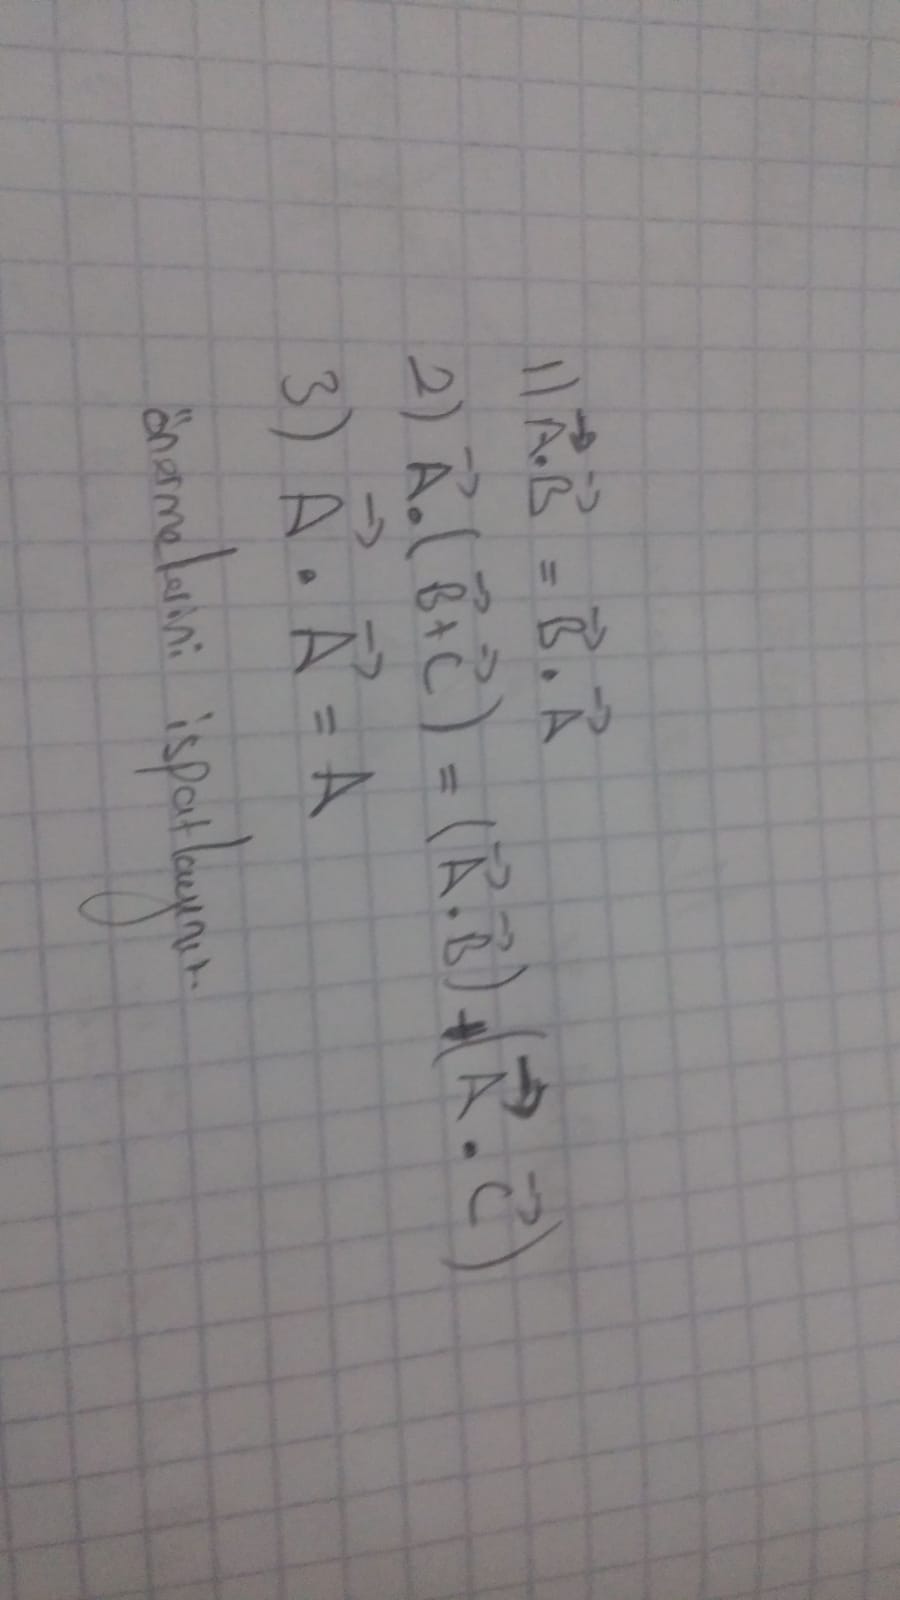 1) A⃗.B⃗ = B⃗.A⃗
2) A⃗.(B⃗+C⃗) = (A⃗.B⃗)+(A⃗.C⃗)
3) A⃗.A⃗ = A
önermelerini ispatlayınız.